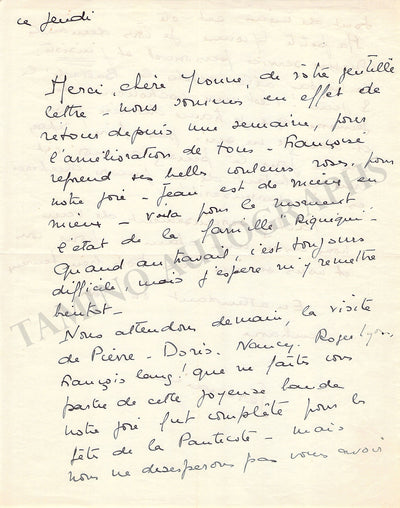 ce jeudi
Merci, chère Yvonne, de vôtre gentille
lettre - nous sommes en effet de
retour depuis une semaine, pour
l'amélioration de tous - Françoise
reprend ses belles couleurs roses, pour
notre joie - Jean est de mieux en
mieux - voila pour le moment
l'état de la famille "Riquiqui" -
Quand au travail, c'est toujours
difficile mais j'espère m'y remettre
bientot -
Nous attendons demain, la visite
de Pierre - Doris. Nancy. Roger Lyon,
François Lang! que ne faîtes vous
partie de cette joyeuse bande
notre joie fut complète pour la
fête de la Pantecôte - mais
nous ne desesperons pas vous avoir
TAMINO AUTOGRAPHS